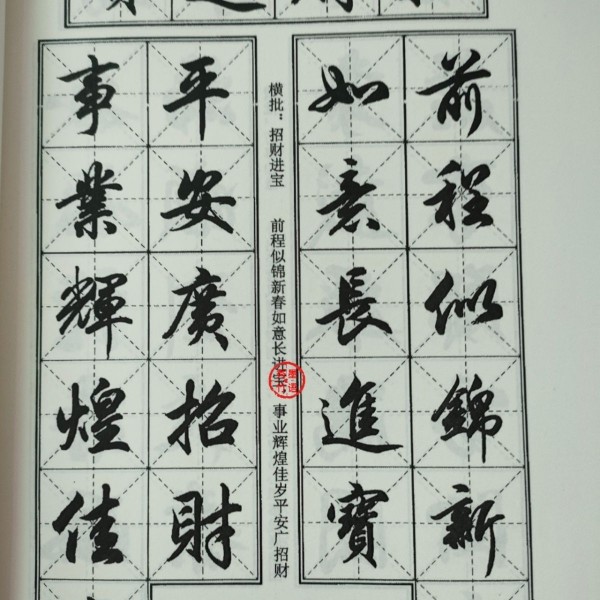 前程似錦新
如意長進寶
横批：招财进宝 前程似锦新春如意长进宝，事业辉煌佳岁平安广招财
事業輝煌佳
平安廣招財